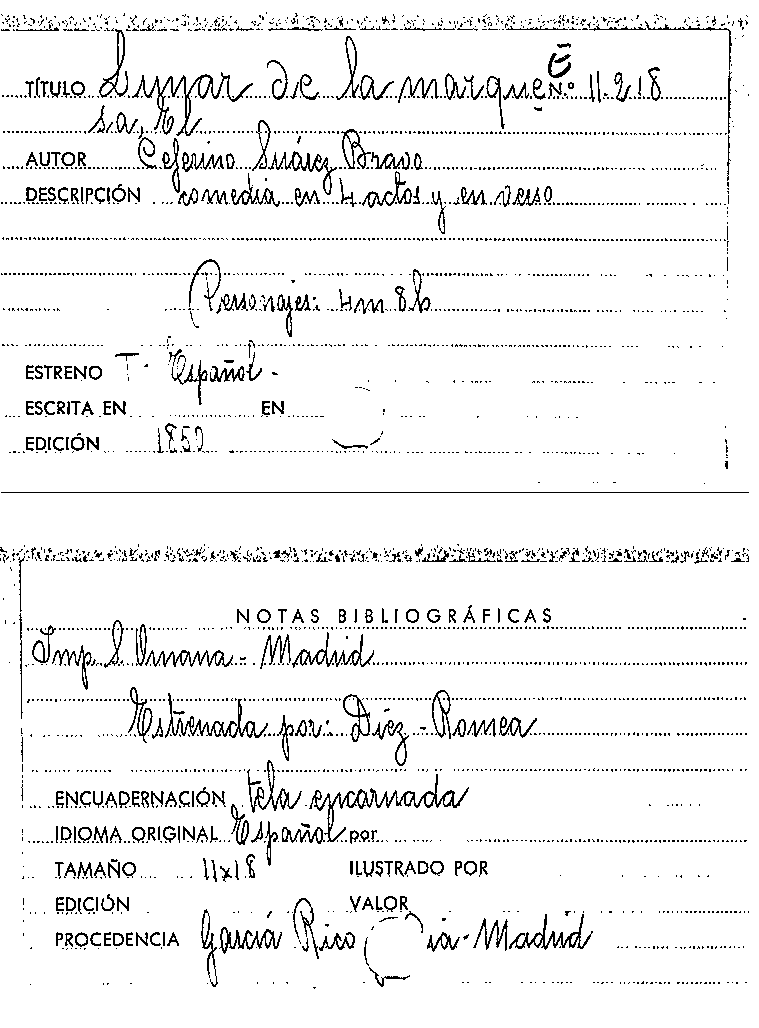 E
TÍTULO Lunar de la marque N.º 11.218
sa, El
AUTOR Ceferino Suárez Bravo
DESCRIPCIÓN comedia en 4 actos y en verso
Personajes: 4m 8h
ESTRENO T. Español.
ESCRITA EN EN
EDICIÓN 1850
NOTAS BIBLIOGRÁFICAS
Imp. S. Omaña - Madrid
Estrenada por: Díez - Romea
ENCUADERNACIÓN tela encarnada
IDIOMA ORIGINAL Español por
TAMAÑO 11x18 ILUSTRADO POR
EDICIÓN VALOR
PROCEDENCIA García Rico ia - Madrid